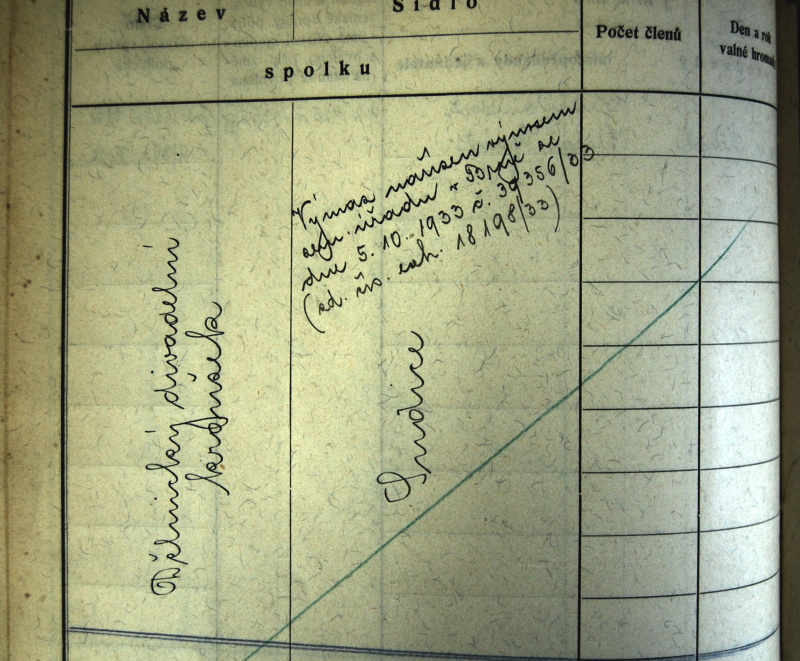 Název Sídlo
spolku
Počet členů
Den a rok
valné hromady
Výmaz nařízen výnosem
zem. úřadu v Brně ze
dne 5. 10. 1933 č. 39356/33
(zd. čís. 18198/33)
Dělnický divadelní
kroužek